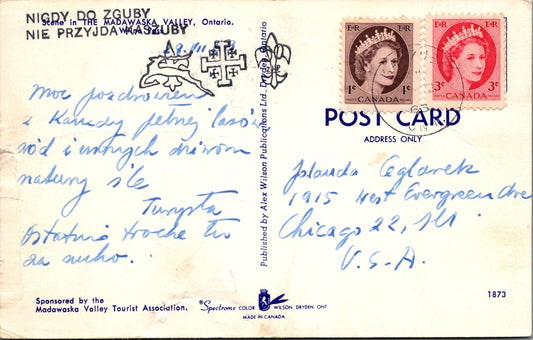 NIGDY DO ZGUBY
NIE PRZYJDĄ KASZUBY
Scene in THE MADAWASKA VALLEY, Ontario.
Moc pozdrowień
z Kanady pełnej lasów
wód i innych dziwów
natury śle
Turysta
Ostatnio trochę tu
za sucho.
Published by Alex Wilson Publications Ltd., Dryden, Ontario
E R E R
1¢ CANADA 1¢
E R E R
3¢ CANADA 3¢
POST CARD
ADDRESS ONLY
Jolanda Ceglarek
1915 West Evergreen Ave
Chicago 22, Ill
U.S.A.
Sponsored by the
Madawaska Valley Tourist Association.
Spectrome COLOR WILSON, DRYDEN, ONT.
MADE IN CANADA
1873